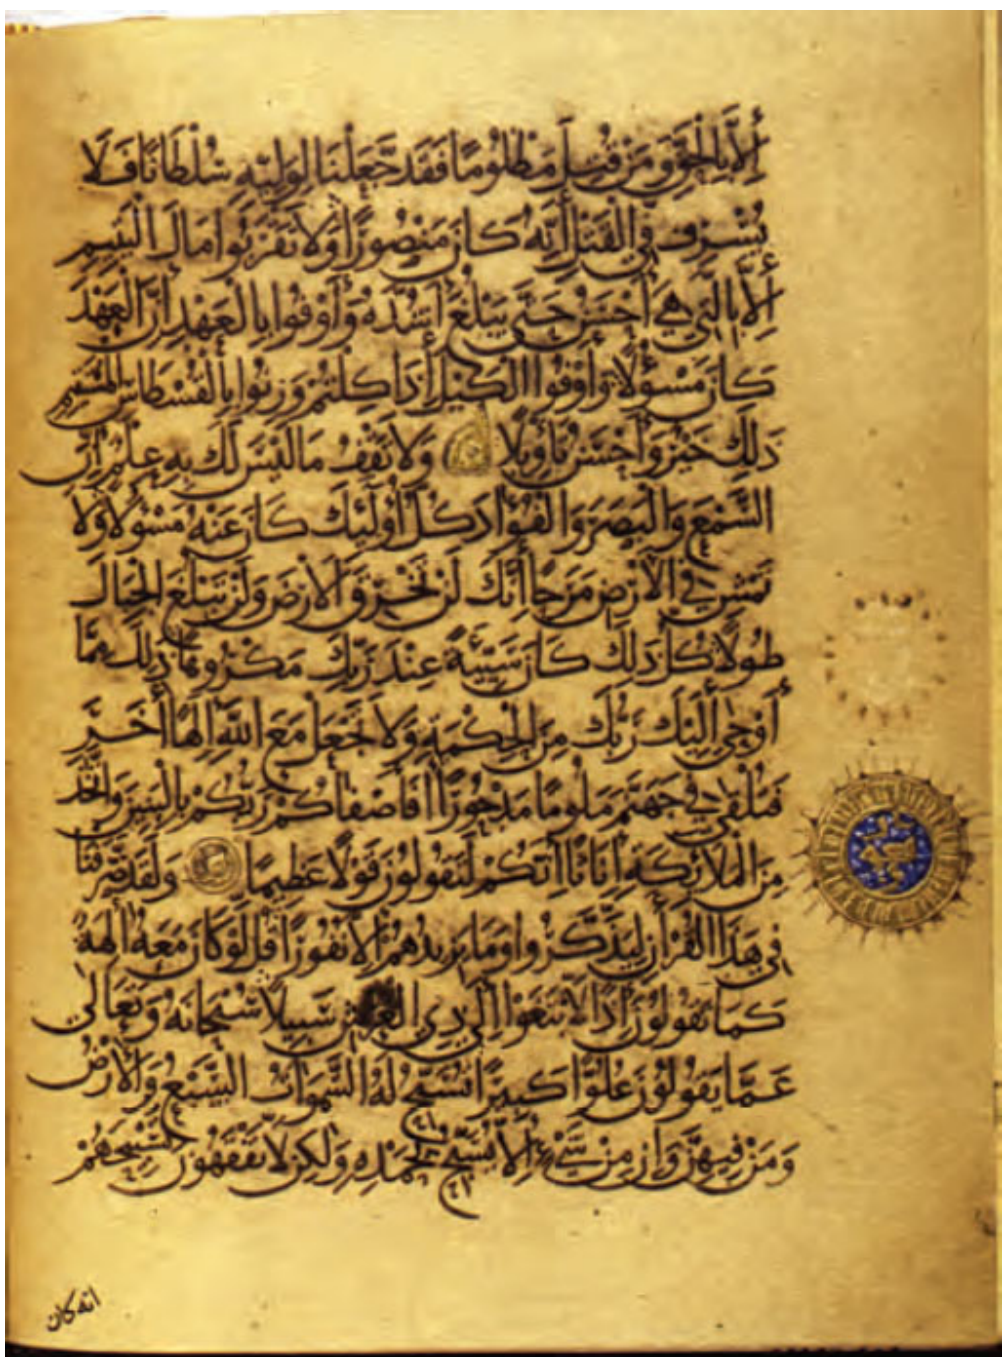 إِلَّا بِالْحَقِّ وَمَنْ قُتِلَ مَظْلُومًا فَقَدْ جَعَلْنَا لِوَلِيِّهِ سُلْطَانًا فَلَا
يُسْرِفْ فِي الْقَتْلِ إِنَّهُ كَانَ مَنْصُورًا وَلَا تَقْرَبُوا مَالَ الْيَتِيمِ
إِلَّا بِالَّتِي هِيَ أَحْسَنُ حَتَّى يَبْلُغَ أَشُدَّهُ وَأَوْفُوا بِالْعَهْدِ إِنَّ الْعَهْدَ
كَانَ مَسْئُولًا وَأَوْفُوا الْكَيْلَ إِذَا كِلْتُمْ وَزِنُوا بِالْقِسْطَاسِ الْمُسْتَقِيمِ
ذَلِكَ خَيْرٌ وَأَحْسَنُ تَأْوِيلًا وَلَا تَقْفُ مَا لَيْسَ لَكَ بِهِ عِلْمٌ إِنَّ
السَّمْعَ وَالْبَصَرَ وَالْفُؤَادَ كُلُّ أُولَئِكَ كَانَ عَنْهُ مَسْئُولًا وَلَا
تَمْشِ فِي الْأَرْضِ مَرَحًا إِنَّكَ لَنْ تَخْرِقَ الْأَرْضَ وَلَنْ تَبْلُغَ الْجِبَالَ
طُولًا كُلُّ ذَلِكَ كَانَ سَيِّئَةً عِنْدَ رَبِّكَ مَكْرُوهًا ذَلِكَ مِمَّا
أَوْحَى إِلَيْكَ رَبُّكَ مِنَ الْحِكْمَةِ وَلَا تَجْعَلْ مَعَ اللَّهِ إِلَهًا آخَرَ
فَتُلْقَى فِي جَهَنَّمَ مَلُومًا مَدْحُورًا أَفَأَصْفَاكُمْ رَبُّكُمْ بِالْبَنِينَ وَاتَّخَذَ
مِنَ الْمَلَائِكَةِ إِنَاثًا إِنَّكُمْ لَتَقُولُونَ قَوْلًا عَظِيمًا وَلَقَدْ صَرَّفْنَا
فِي هَذَا الْقُرْآنِ لِيَذَّكَّرُوا وَمَا يَزِيدُهُمْ إِلَّا نُفُورًا قُلْ لَوْ كَانَ مَعَهُ آلِهَةٌ
كَمَا تَقُولُونَ إِذًا لَابْتَغَوْا إِلَى ذِي الْعَرْشِ سَبِيلًا سُبْحَانَهُ وَتَعَالَى
عَمَّا يَقُولُونَ عُلُوًّا كَبِيرًا تُسَبِّحُ لَهُ السَّمَوَاتُ السَّبْعُ وَالْأَرْضُ
وَمَنْ فِيهِنَّ وَإِنْ مِنْ شَيْءٍ إِلَّا يُسَبِّحُ بِحَمْدِهِ وَلَكِنْ لَا تَفْقَهُونَ تَسْبِيحَهُمْ
انه كان